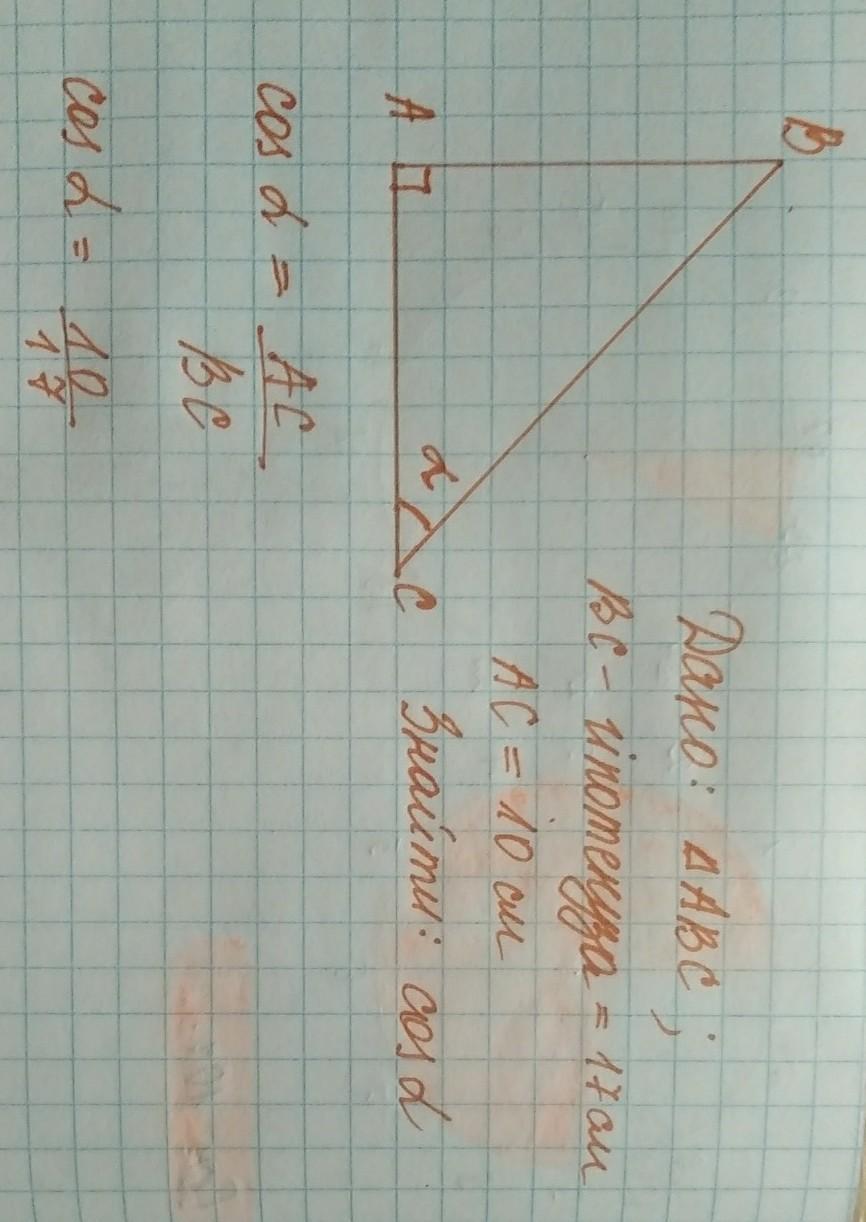 B
Дано: ΔABC ;
BC - гіпотенуза = 17 см
AC = 10 см
α
A
C
Знайти: cos α
cos α = AC
BC
cos α = 10
17